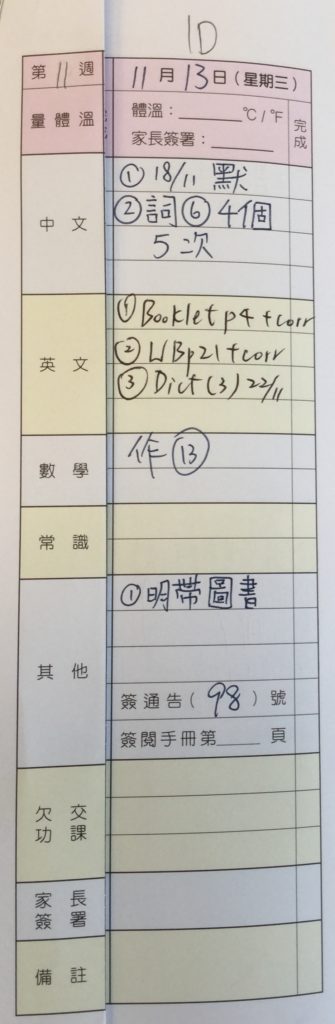 1D
第 11 週 11 月 13 日 (星期三)
量體溫 體溫：______°C / °F 完成
家長簽署：______
中文 ① 18/11 默
② 詞 ⑥ 4個
5次
英文 ① Booklet p4 + corr
② WB p21 + corr
③ Dict (3) 22/11
數學 作 ⑬
常識
其他 ① 明帶圖書
簽通告 ( 98 ) 號
簽閱手冊第______頁
欠交功課
家長簽署
備註